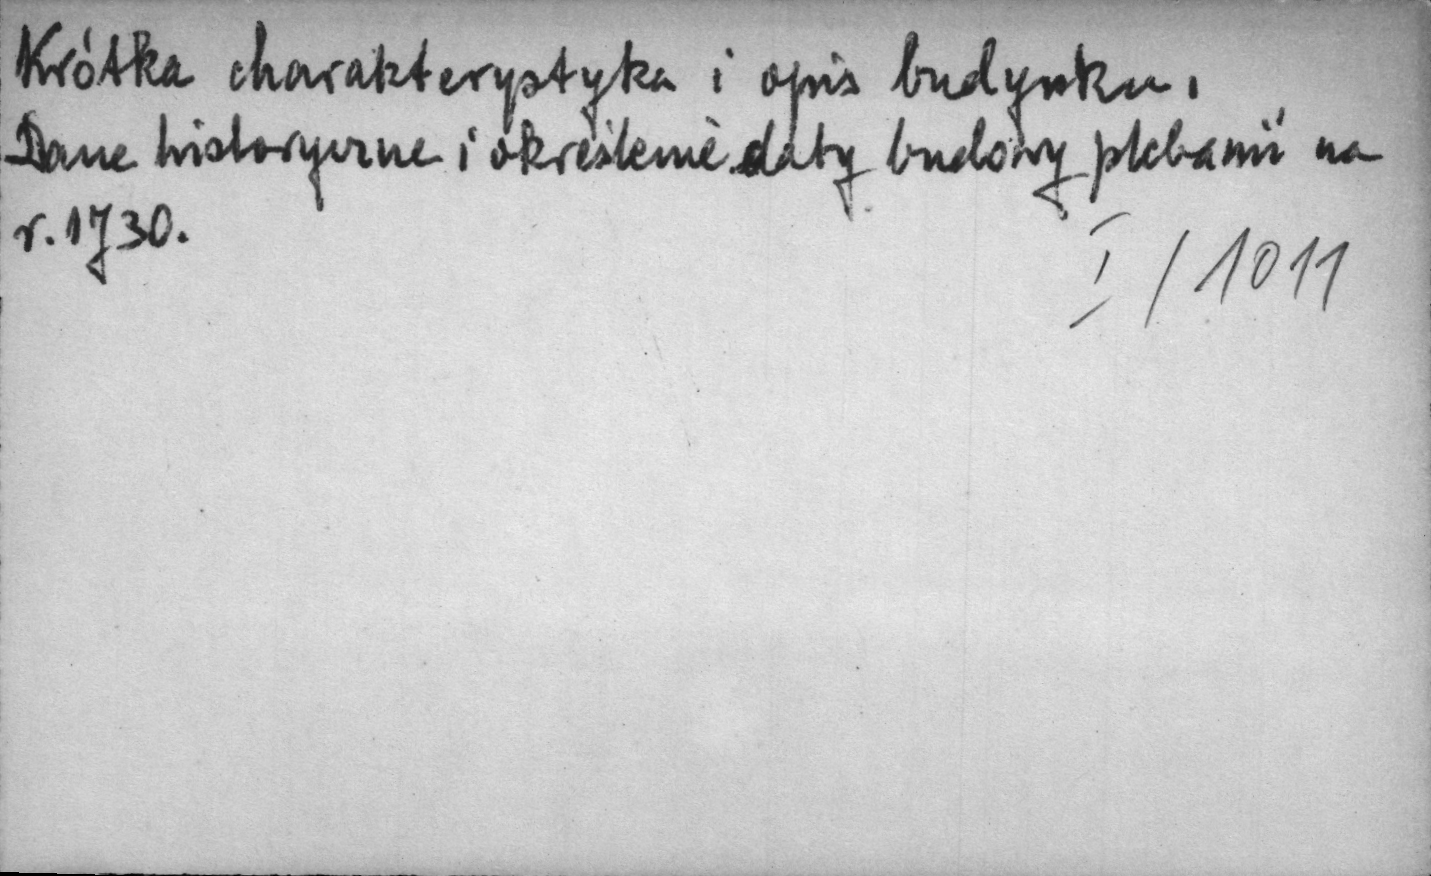 Krótka charakterystyka i opis budynku.
Dane historyczne i określenie daty budowy plebanii na
r. 1730.
I / 1011